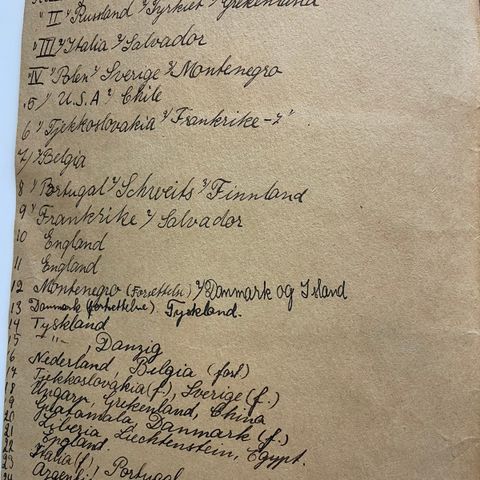 "II " Russland " Tyrkiet " Grekenland
"III " Italia " Salvador
"IV " Polen " Sverige " Montenegro
"5 " U.S.A " Chile
6 " Tjekkoslovakia " Frankrike - "
7 " Belgia
8 " Portugal " Schweits " Finnland
9 " Frankrike " Salvador
10 England
11 England
12 Montenegro (Forsetteln) " Danmark og Island
13 Danmark (fortsettelse). Tyskland.
14 Tyskland
15 -"- , Danzig
16 Nederland, Belgia (fors)
17 Tjekkoslovakia (f.), Sverige (f.)
18 Ungarn, Grekenland, China
19 Guatamala Danmark (f.)
20 Liberia Liechtenstein, Egypt.
21 England.
22 Italia (f.) Portugal
23
24